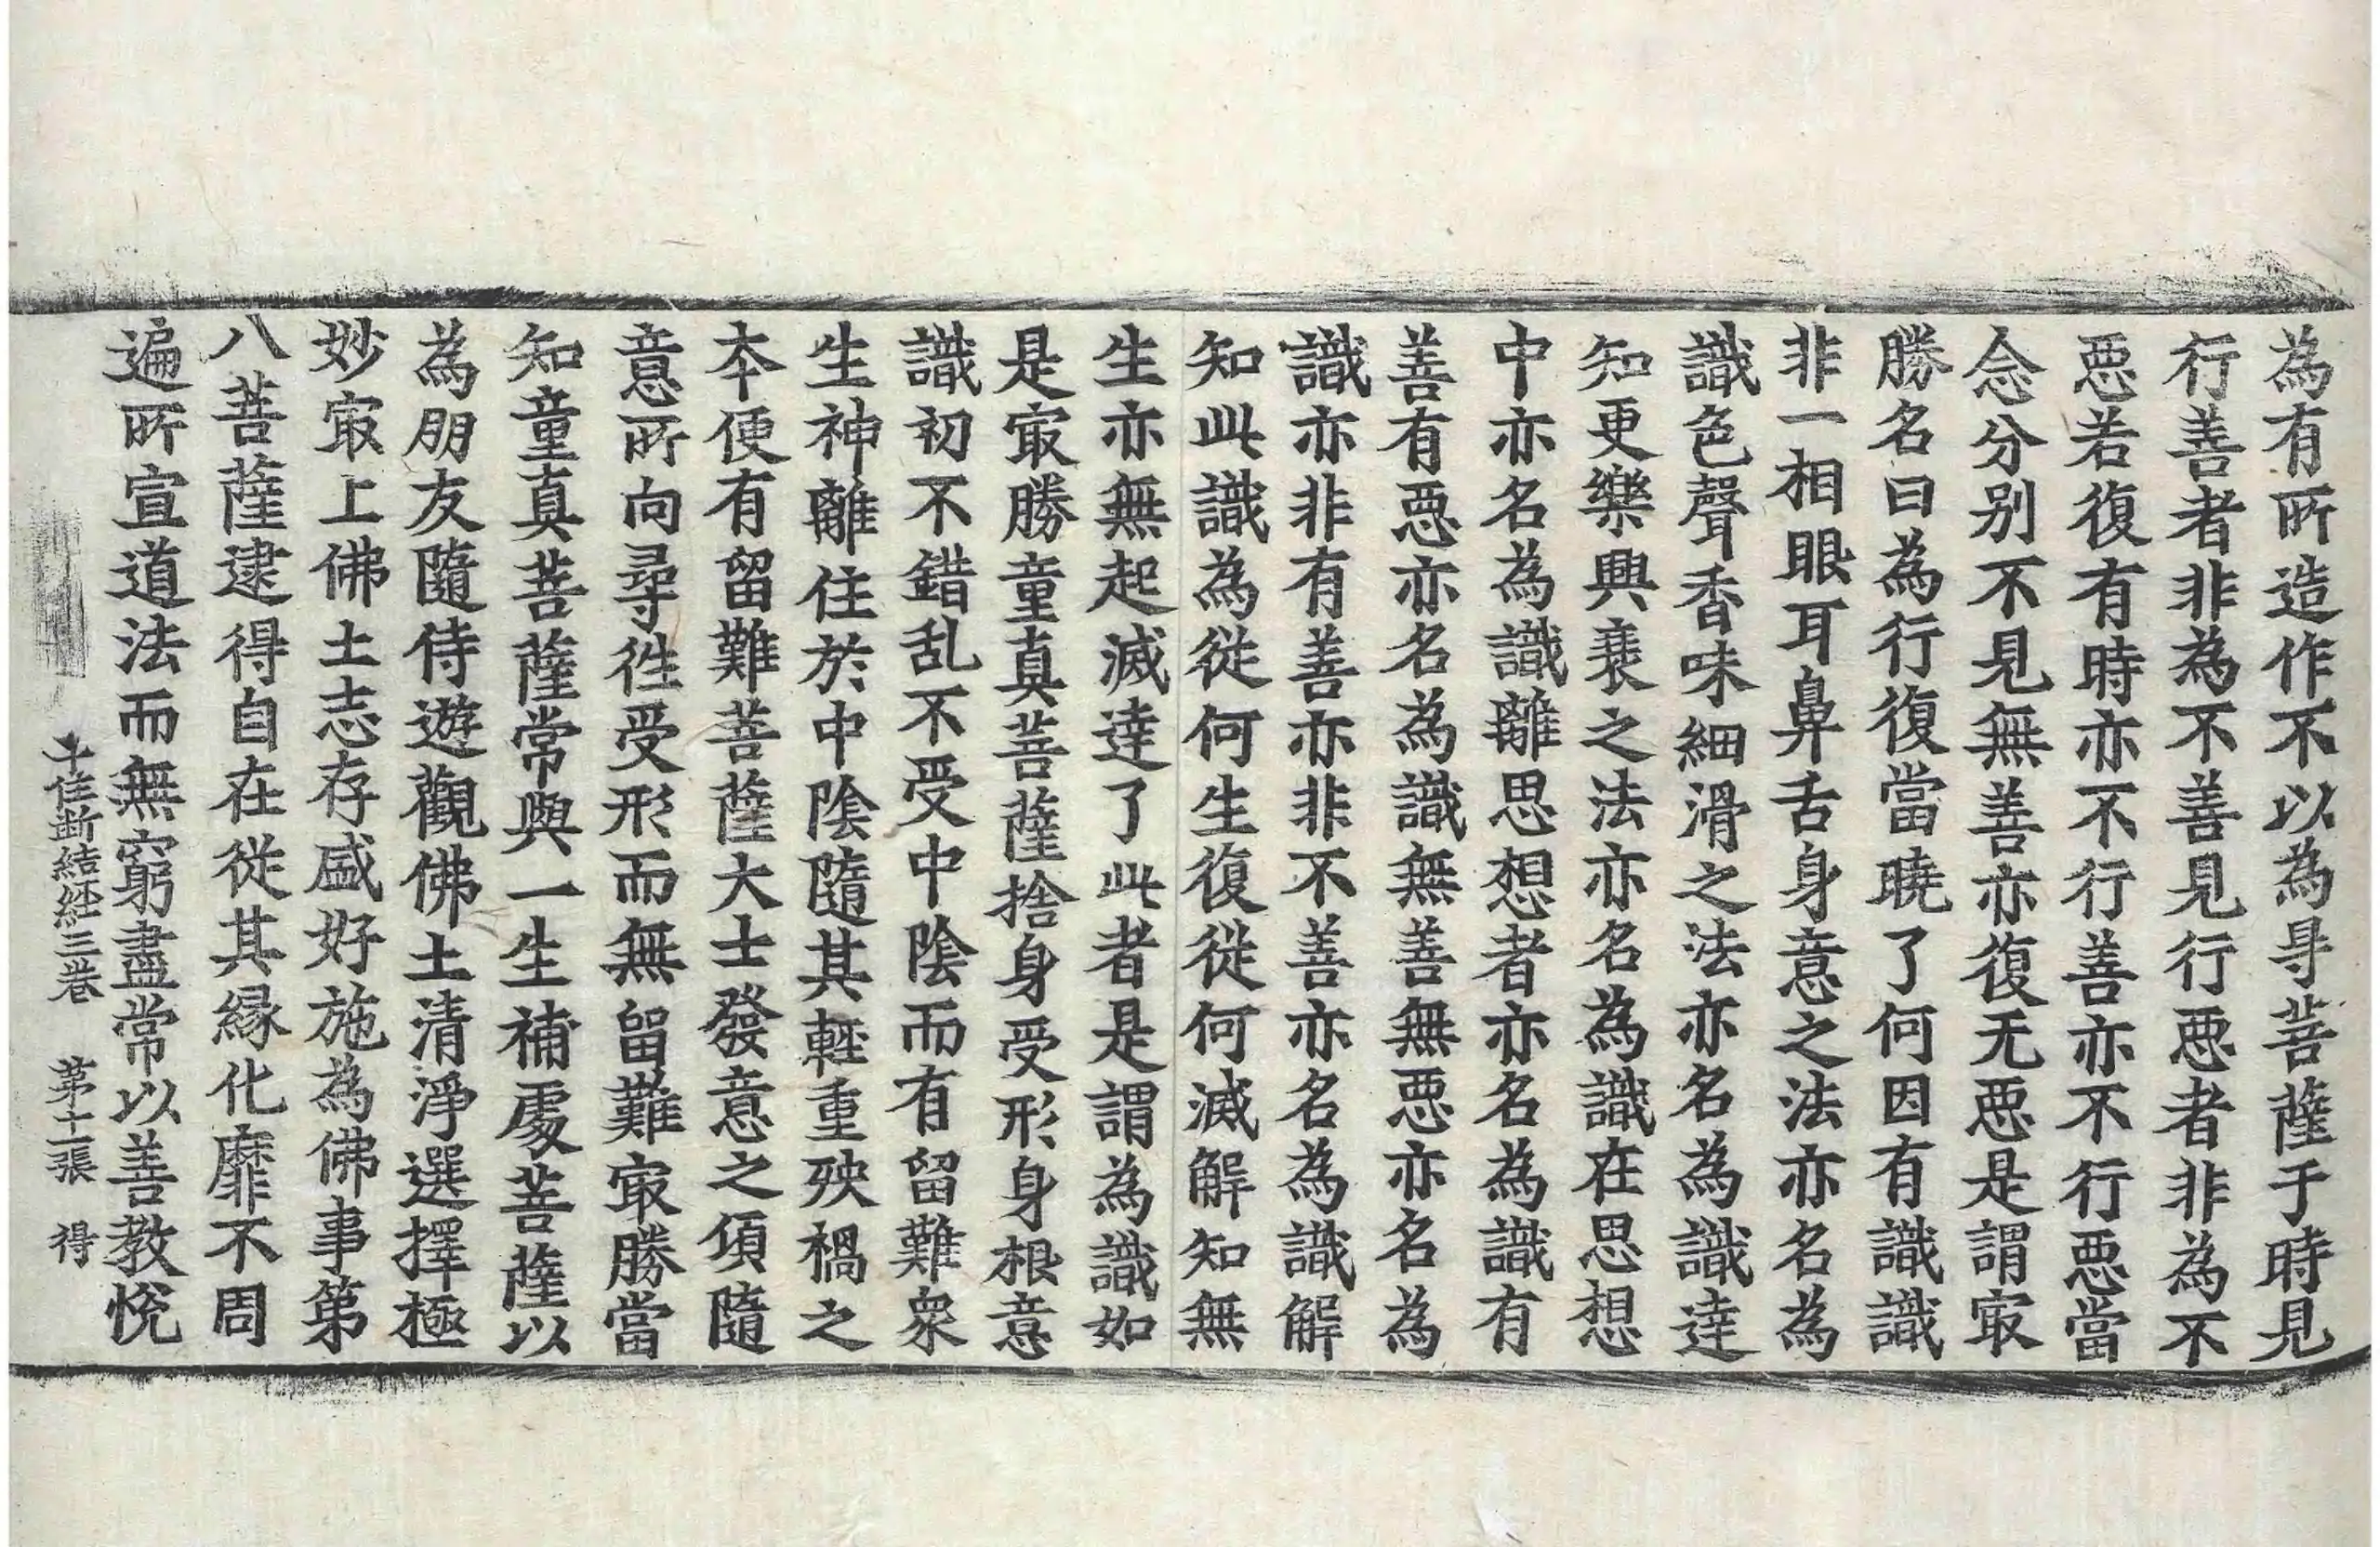 為有所造作不以為㝵菩薩于時見
行善者非為不善見行惡者非為不
惡若復有時亦不行善亦不行惡當
念分別不見無善亦復无惡是謂冣
勝名曰為行復當曉了何因有識識
非一相眼耳鼻舌身意之法亦名為
識色聲香味細滑之法亦名為識達
知更樂興衰之法亦名為識在思想
中亦名為識離思想者亦名為識有
善有惡亦名為識無善無惡亦名為
識亦非有善亦非不善亦名為識解
知此識為從何生復從何滅解知無
生亦無起滅達了此者是謂為識如
是冣勝童真菩薩捨身受形身根意
識初不錯乱不受中陰而有留難衆
生神離住於中陰隨其輕重殃禍之
本便有留難菩薩大士發意之傾隨
意所向尋徃受形而無留難冣勝當
知童真菩薩常與一生補處菩薩以
為朋友隨侍遊觀佛土清淨選擇極
妙冣上佛土志存盛好施為佛事第
八菩薩逮得自在從其縁化靡不周
遍所宣道法而無窮盡常以善教悅
十住斷結經三卷 第十一張 得